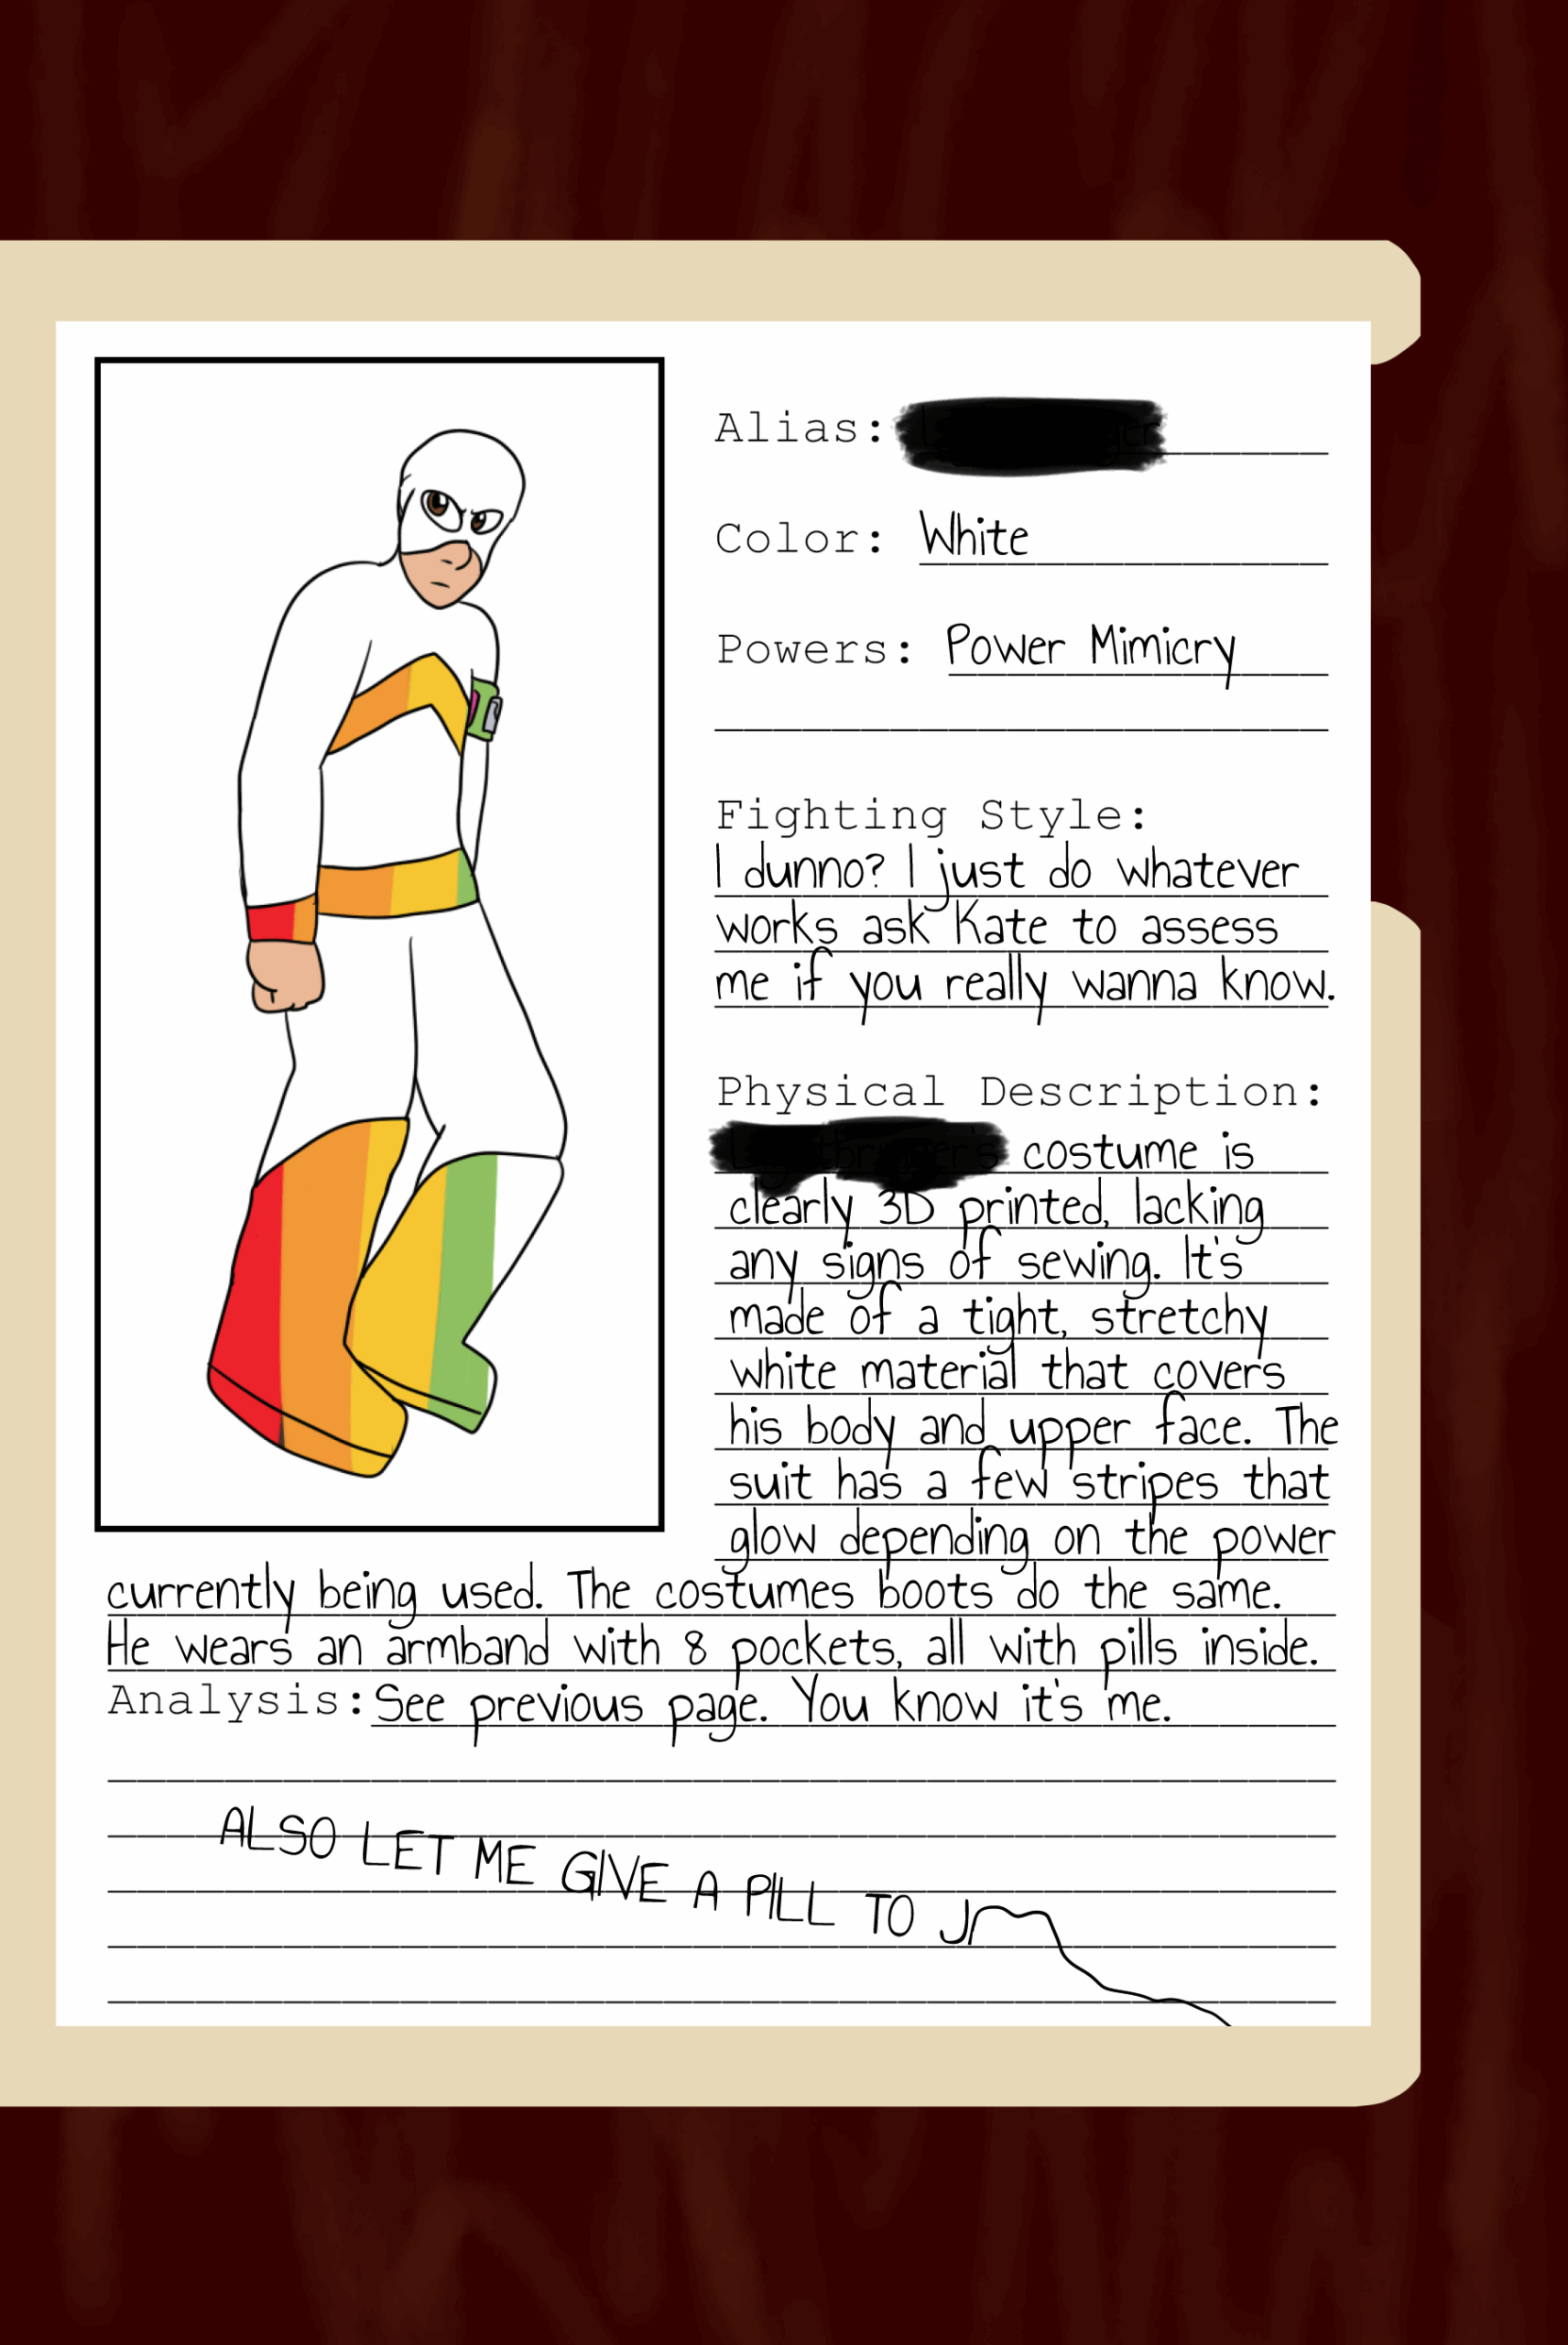 Alias:
Color: White
Powers: Power Mimicry
Fighting Style:
I dunno? I just do whatever
works ask Kate to assess
me if you really wanna know.
Physical Description:
costume is
clearly 3D printed, lacking
any signs of sewing. It's
made of a tight, stretchy
white material that covers
his body and upper face. The
suit has a few stripes that
glow depending on the power
currently being used. The costumes boots do the same.
He wears an armband with 8 pockets, all with pills inside.
Analysis: See previous page. You know it's me.
ALSO LET ME GIVE A PILL TO J